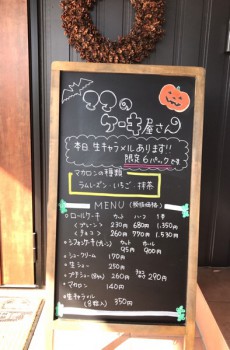 ママの
ケーキ屋さん
本日 生キャラメルあります!!
限定6パックです
マカロンの種類
ラムレーズン・いちご・抹茶
MENU (税抜価格)
ロールケーキ カット ハーフ 1本
〈プレーン〉 230円 680円 1.350円
〈チョコ〉 260円 770円 1.530円
シフォンケーキ カット ホール
95円 900円
シュークリーム 170円
生ショコラ 250円
プチシュー 290円
マカロン 140円
生キャラメル 350円